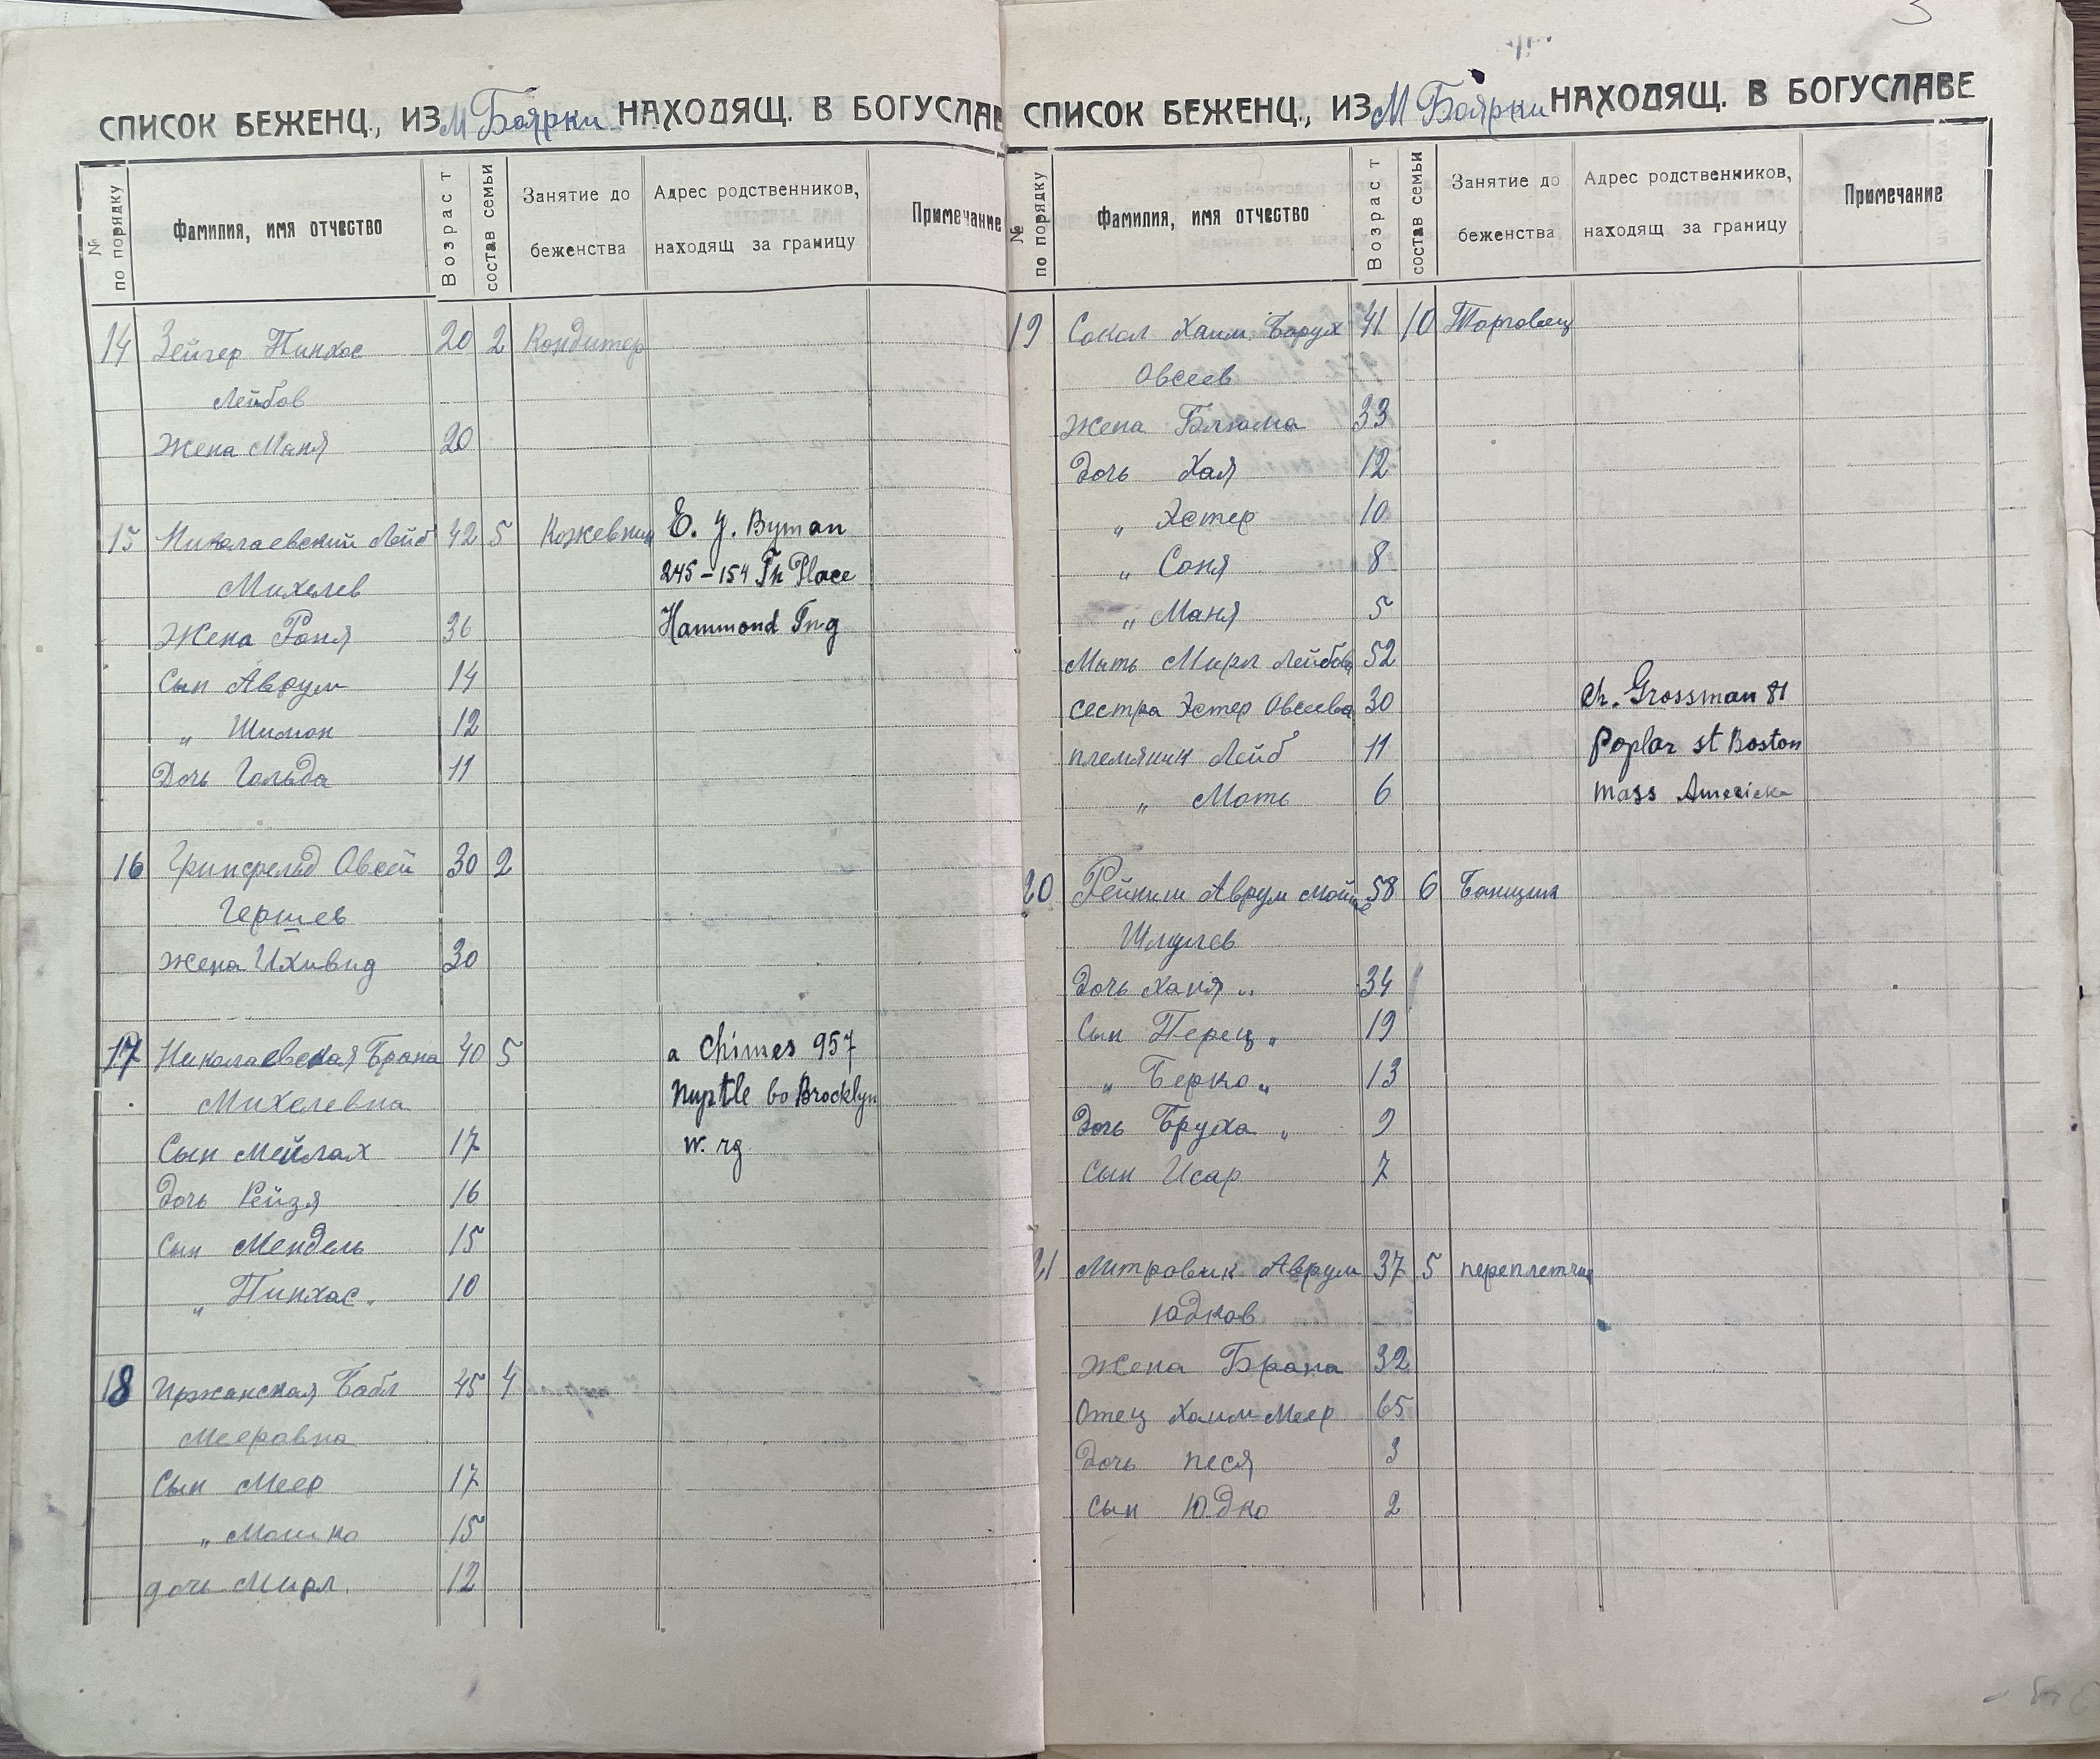 СПИСОК БЕЖЕНЦ., ИЗ м Боярки НАХОДЯЩ. В БОГУСЛАВ
№ по порядку
Фамилия, имя отчество
Возраст
состав семьи
Занятие до беженства
Адрес родственников, находящ за границу
Примечание
14 Зейгер Пинхос 20 2 Кондитер
Лейбов
Жена Маня 20
15 Николаевский Лейб 42 5 Кожевник E. y. Byman
Михелев 245-154 Th Place
Жена Раня 36 Hammond Ing
Сын Аврум 14
„ Шимон 12
Дочь Гольда 11
16 Гринфельд Овсей 30 2
Гершев
Жена Ихивид 30
17 Николаевская Брана 40 5 a Chimes 957
Михелевна Myrtle bo Brocklyn
Сын Мейлах 17 w. rg
Дочь Рейзя 16
Сын Мендель 15
„ Пинхас. 10
18 Иржанская Бабл 45 4
Мееровна
Сын Меер 17
„ Мошко 15
дочь Мирл. 12
СПИСОК БЕЖЕНЦ., ИЗ М Боярки НАХОДЯЩ. В БОГУСЛАВЕ
№ по порядку
Фамилия, имя отчество
Возраст
состав семьи
Занятие до беженства
Адрес родственников, находящ за границу
Примечание
19 Сокол Хаим Борух 41 10 Торговец
Овсеев
Жена Блюма 33
Дочь Хая 12
„ Эстер 10
„ Соня 8
„ Маня 5
Мать Мирл Лейбова 52
сестра Эстер Овсеева 30 Ch. Grossman 81
племяник Лейб 11 Poplar st Boston
„ Моть 6 mass Americka
20 Аврум Мойше 58 6 Банщик
Шлулев
Дочь Ханя „ 34
Сын Перец „ 19
„ Берко „ 13
Дочь Бруха „ 9
Сын Исар 7
21 Митровик Аврум 37 5 переплетчик
Юдков
Жена Брана 32
Отец Хаим-Меер 65
Дочь Песя 3
Сын Юдко 2